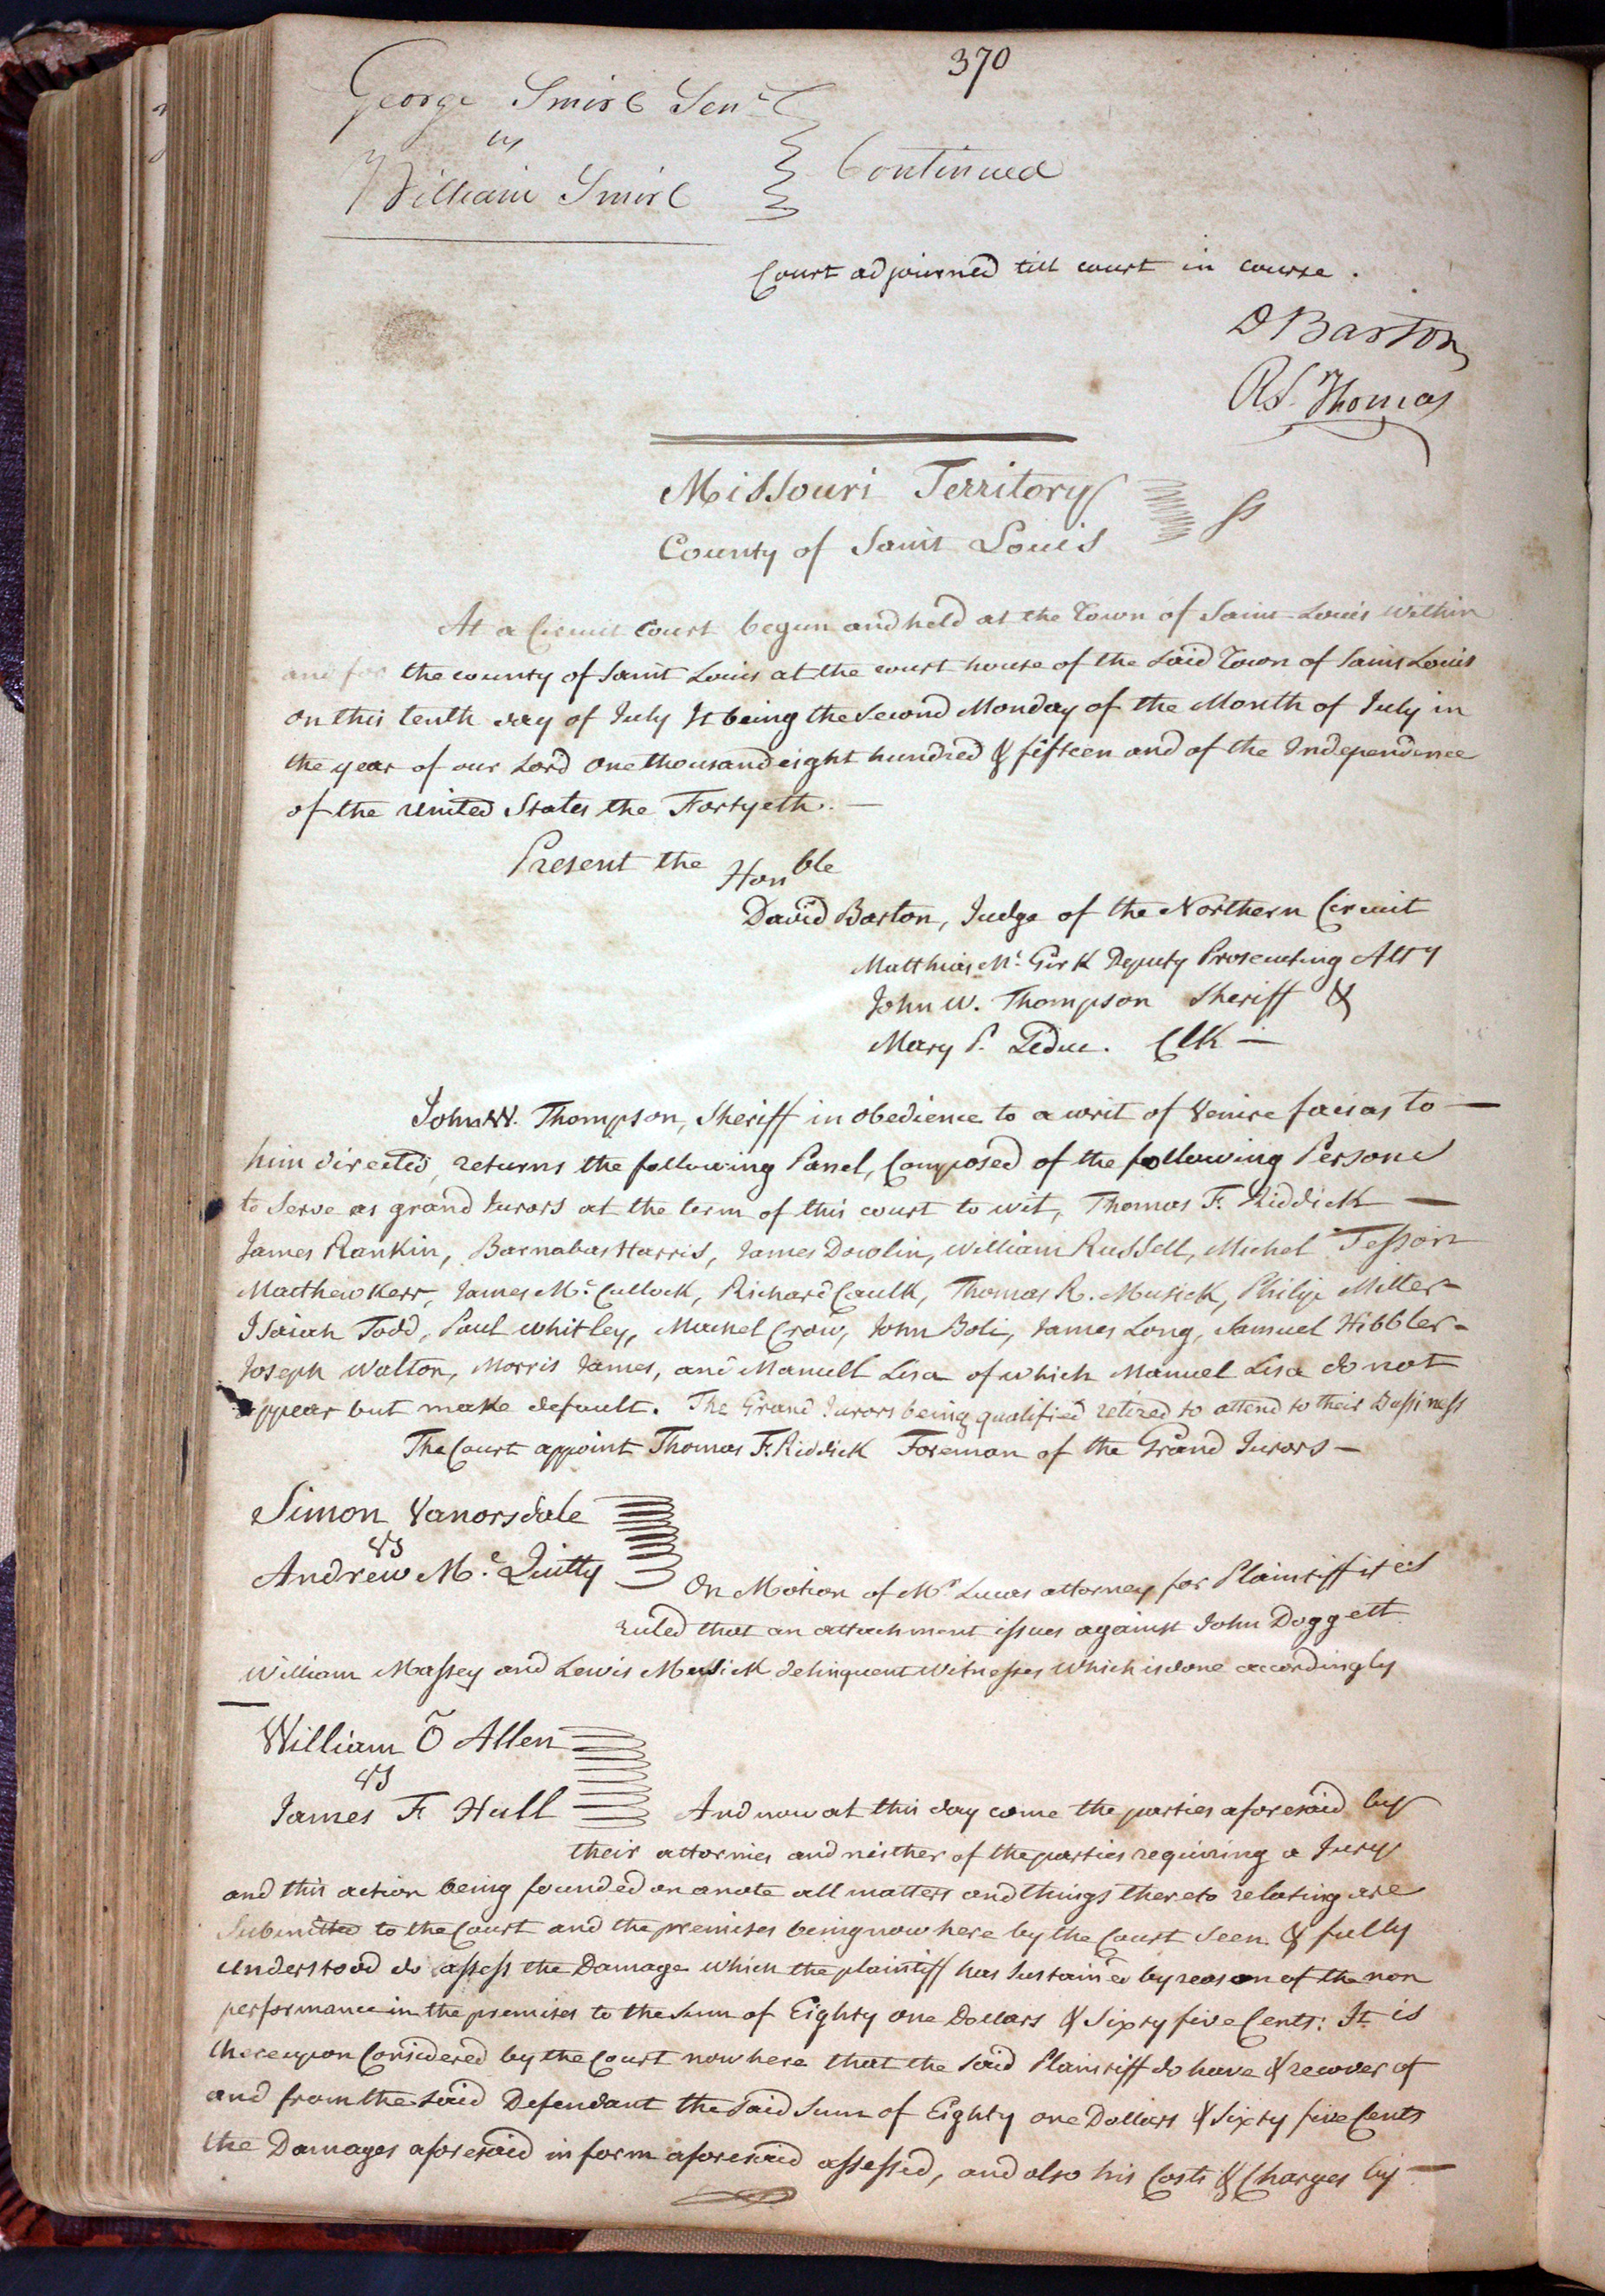 370
George Smirl Senr
vs
William Smirl
Continued
Court adjourned till court in course.
D Barton
R S. Thomas
Missouri Territory
County of Saint Louis
ss
At a Circuit Court begun and held at the Town of Saint Louis within
and for the county of Saint Louis at the court house of the said Town of Saint Louis
on this tenth day of July It being the Second Monday of the Month of July in
the year of our Lord one thousand eight hundred & fifteen and of the Independence
of the United States the Fortyeth. —
Present the Honble
David Barton, Judge of the Northern Circuit
Matthias Mc Girk Deputy Prosecuting Atty
John W. Thompson Sheriff &
Mary P. Leduc. Clk —
John W. Thompson, Sheriff in obedience to a writ of Venire facias to —
him directed, returns the following Panel, Composed of the following Persons
to Serve as grand Jurors at the term of this court to wit, Thomas F. Riddick —
James Rankin, Barnabas Harris, James Dowlin, William Russell, Michel Tesson
Matthew Kerr, James Mc Cullock, Richard Caulk, Thomas R. Musick, Philip Miller -
Isaiah Todd, Paul Whitley, Crow, John Boli, James Long, Samuel Hibbler -
Joseph Walton, Morris James, and Manuell Lisa of which Manuel Lisa do not
appear but make default. The Grand Jurors being qualified retired to attend to their Bussiness
The Court appoint Thomas F. Riddick Foreman of the Grand Jurors —
Simon Vanorsdale
vs
Andrew Mc Quitty
On Motion of Mr Lucas attorney for Plaintiff it is
ruled that an attachment issues against John Doggett
William Massey and Lewis Musick delinquent Witnesses Which is done accordingly
William O Allen
vs
James F. Hull
And now at this day come the parties aforesaid by
their attornies and neither of the parties requiring a Jury
and this action being founded on a note all matters and things thereto relating are
Submitted to the Court and the premises being now here by the Court Seen & fully
understood do assess the Damage which the plaintiff has Sustained by reason of the non
performance in the premises to the Sum of Eighty one Dollars & Sixty five Cents: It is
thereupon Considered by the Court now here that the said Plaintiff do have & recover of
and from the said Defendant the said Sum of Eighty one Dollars & Sixty five Cents
the Damages aforesaid in form aforesaid assessed, and also his Costs & Charges by —